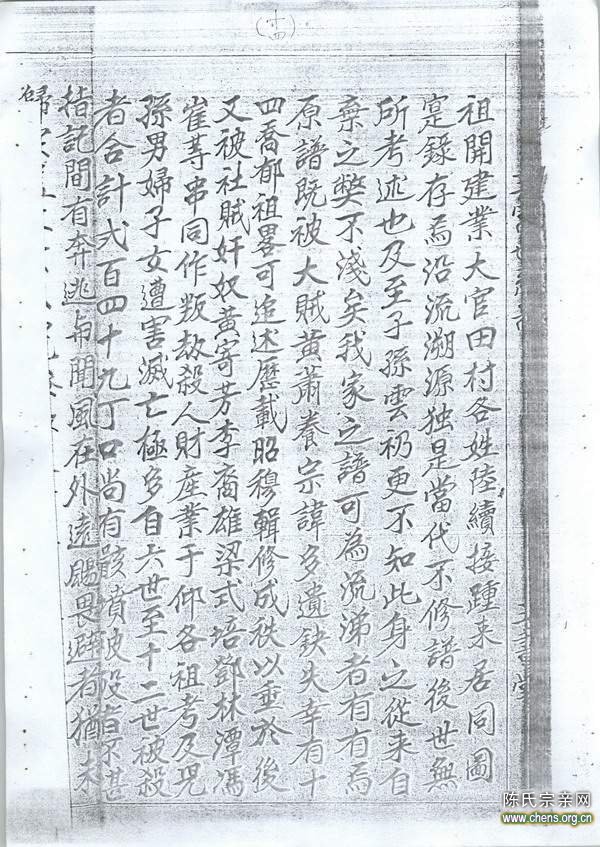 (十四)
祖開建業大官田村各姓陸續接踵来居同圖
寔錄存焉沿流溯源独是當代不修譜後世無
所考述也及至子孫雲礽更不知此身之從来自
棄之獘不淺矣我家之譜可為流涕者有有焉
原譜既被大賊黄蕭養宗諱多遺鈌失幸有十
四喬郁祖畧可追述歷載昭穆輯修成秩以垂於後
又被社賊奸奴黃寄芳李裔雄梁式培鄧林潭馮
崔䓁串同作叛刼殺人財産業于仰各祖考及兒
孫男婦子女遭害滅亡極多自六世至十二世被殺
者合計弍百四十九丁口尚有骸墳被没者不甚
指記間有奔逃与聞風在外遠颺畏避者猶未
歸
陈氏宗亲网
www.chens.org.cn